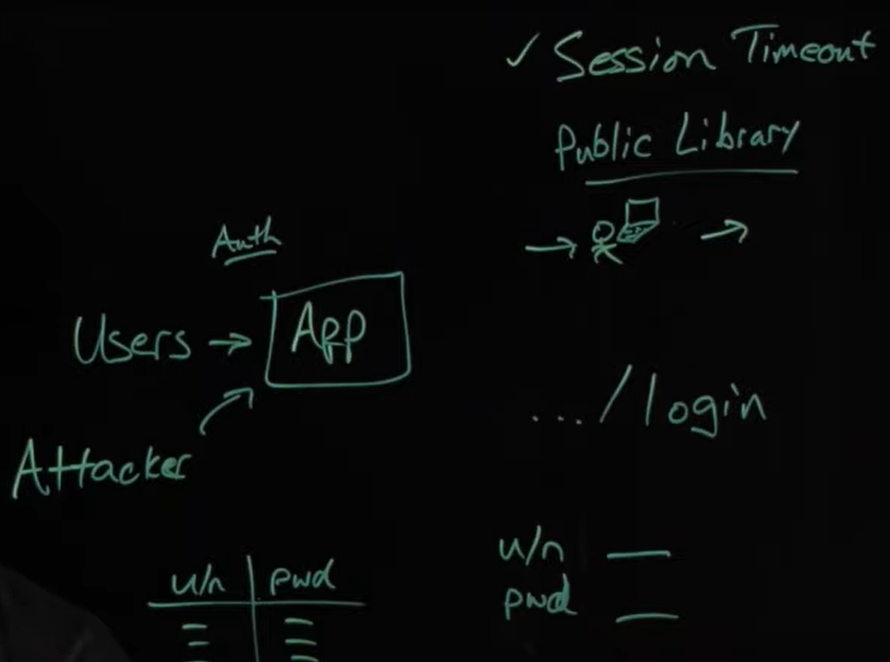 ✓ Session Timeout
Public Library
Auth
Users → App
Attacker
.../login
u/n | pwd
u/n __
pwd __